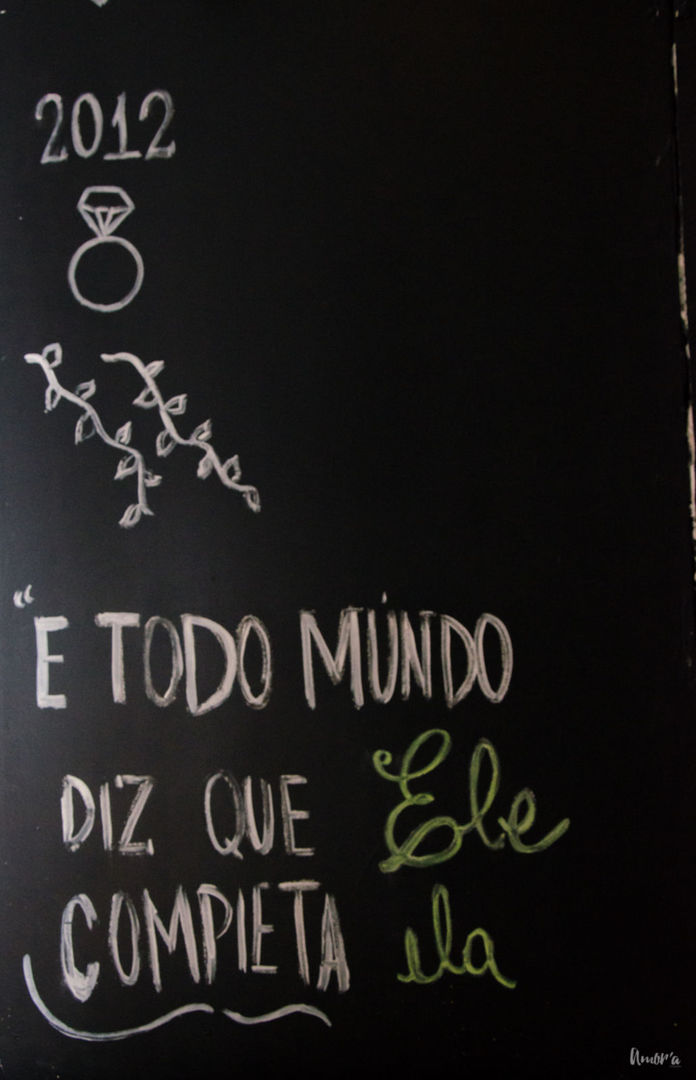 2012
"E TODO MUNDO
DIZ QUE Ele
COMPLETA ela
Amor'a